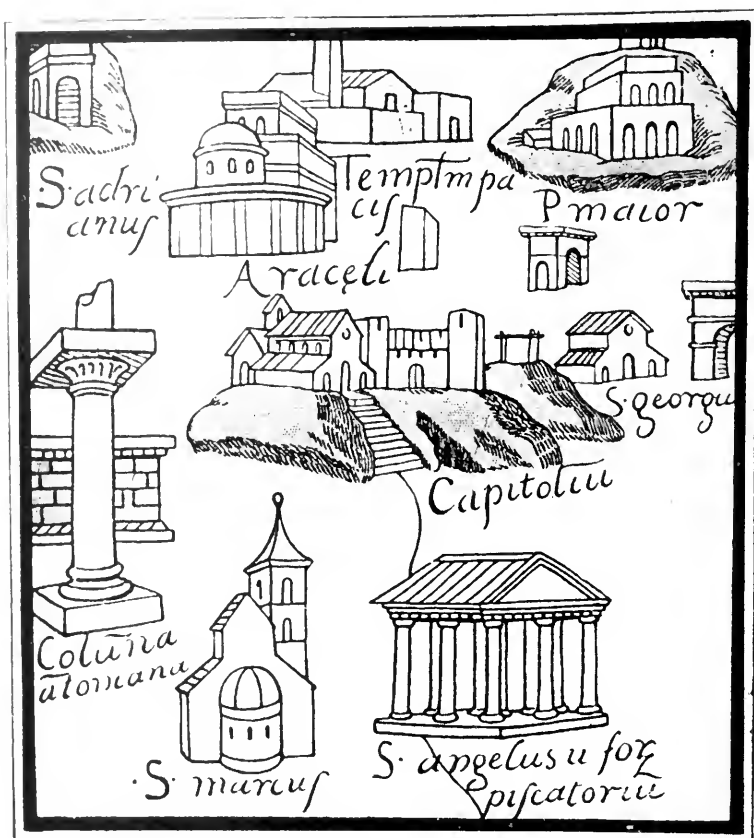 ·S·adri
anuſ
Templm pa
cis
P maior
Aracęli
S·georgii
Capitoliu
Coluña
atoniana
·S· marcuſ
S· angelus ii for
piſcatoriu